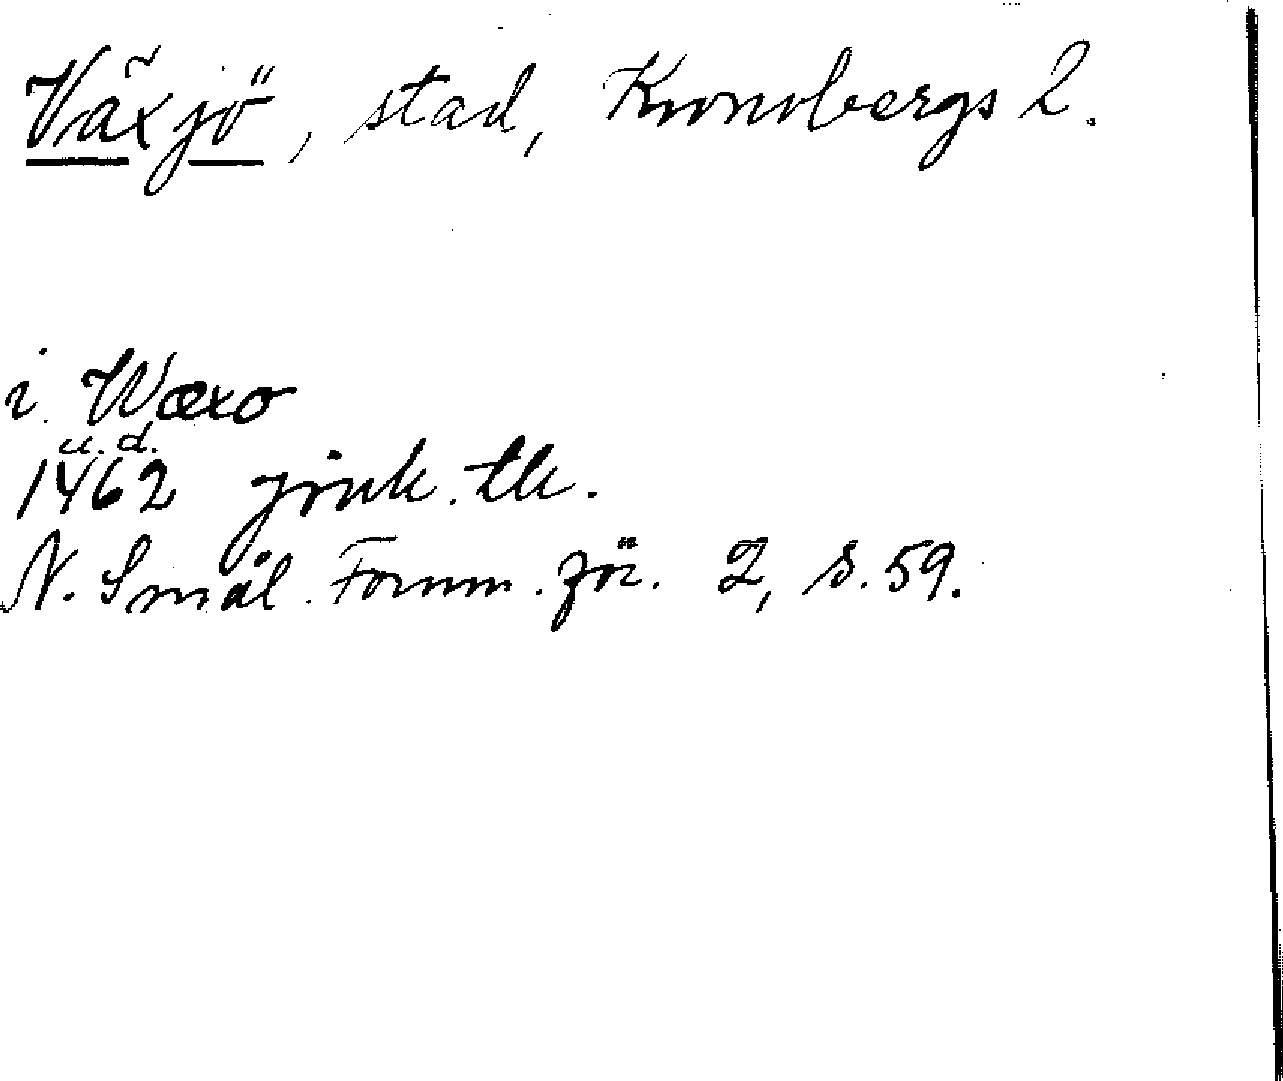 Växjö, stad, Kronobergs l.
i Wæxo
u.d.
1462 jfruk. tk.
N. Smål. Fornm. för. 2, s. 59.